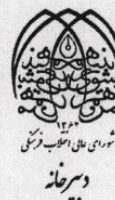 ۱۳۶۳
شورای عالی انقلاب فرهنگی
دبیرخانه